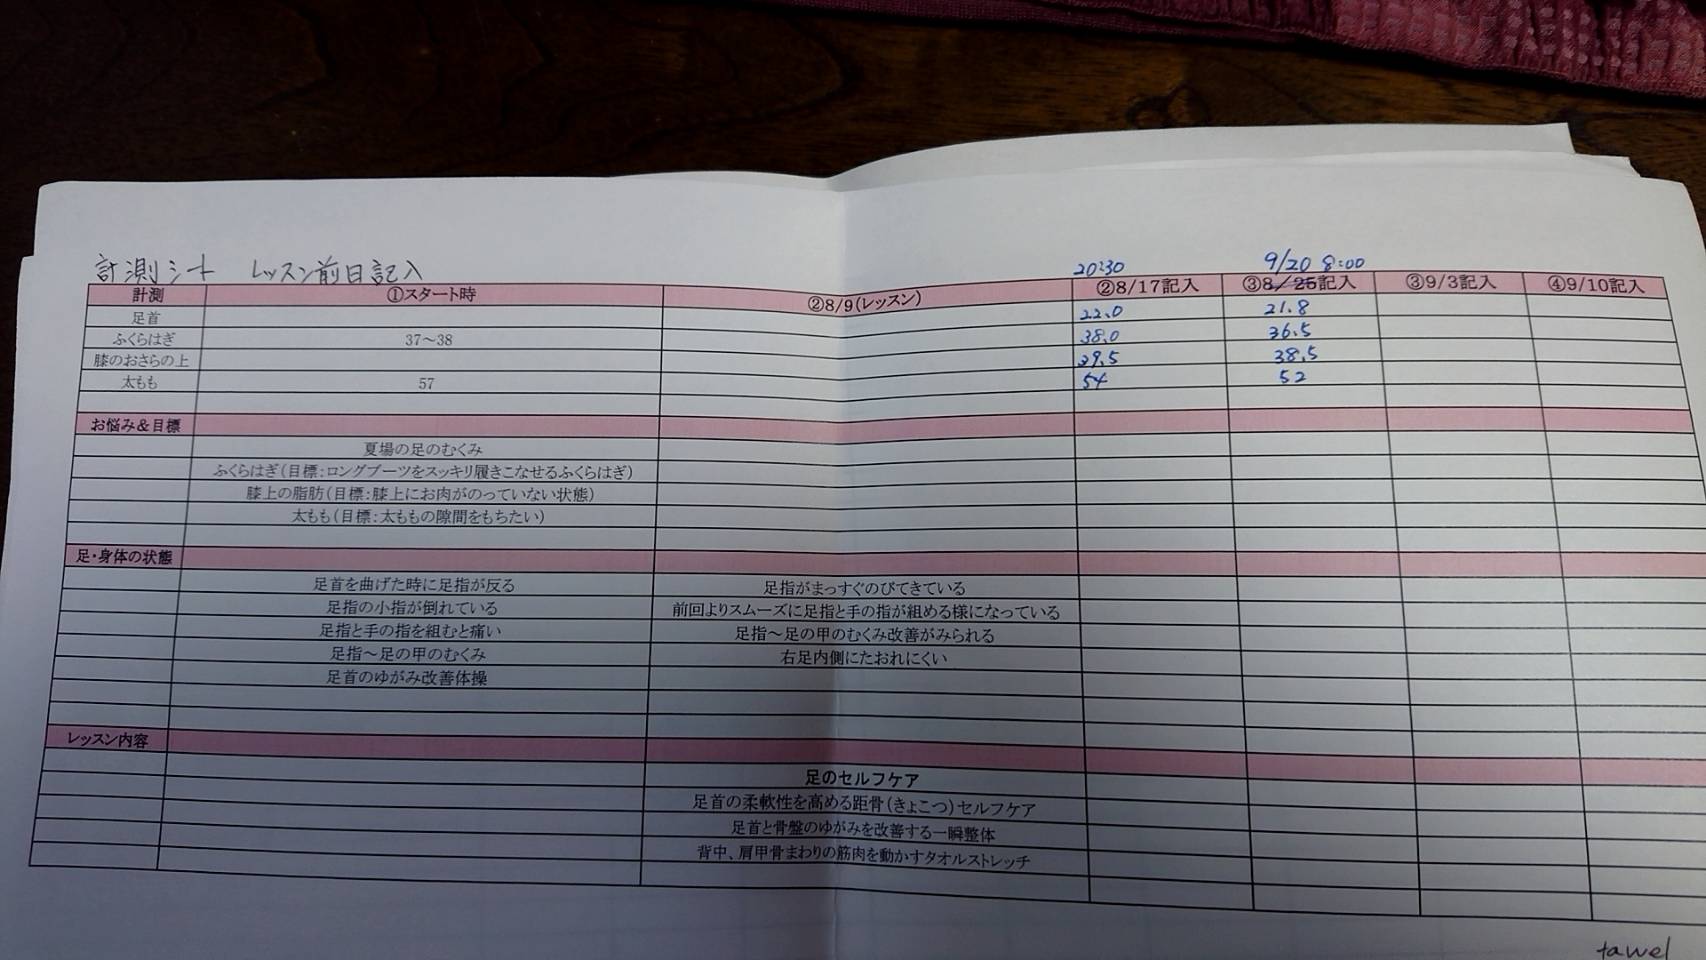 計測シート レッスン前日記入
20:30 9/20 8:00
計測 ①スタート時 ②8/9(レッスン) ②8/17記入 ③8/25記入 ③9/3記入 ④9/10記入
足首 22.0 21.8
ふくらはぎ 37～38 38.0 36.5
膝のおさらの上 39.5 38.5
太もも 57 54 52
お悩み＆目標
夏場の足のむくみ
ふくらはぎ(目標:ロングブーツをスッキリ履きこなせるふくらはぎ)
膝上の脂肪(目標:膝上にお肉がのっていない状態)
太もも(目標:太ももの隙間をもちたい)
足・身体の状態
足首を曲げた時に足指が反る 足指がまっすぐのびてきている
足指の小指が倒れている 前回よりスムーズに足指と手の指が組める様になっている
足指と手の指を組むと痛い 足指～足の甲のむくみ改善がみられる
足指～足の甲のむくみ 右足内側にたおれにくい
足首のゆがみ改善体操
レッスン内容
足のセルフケア
足首の柔軟性を高める距骨(きょこつ)セルフケア
足首と骨盤のゆがみを改善する一瞬整体
背中、肩甲骨まわりの筋肉を動かすタオルストレッチ
tawel